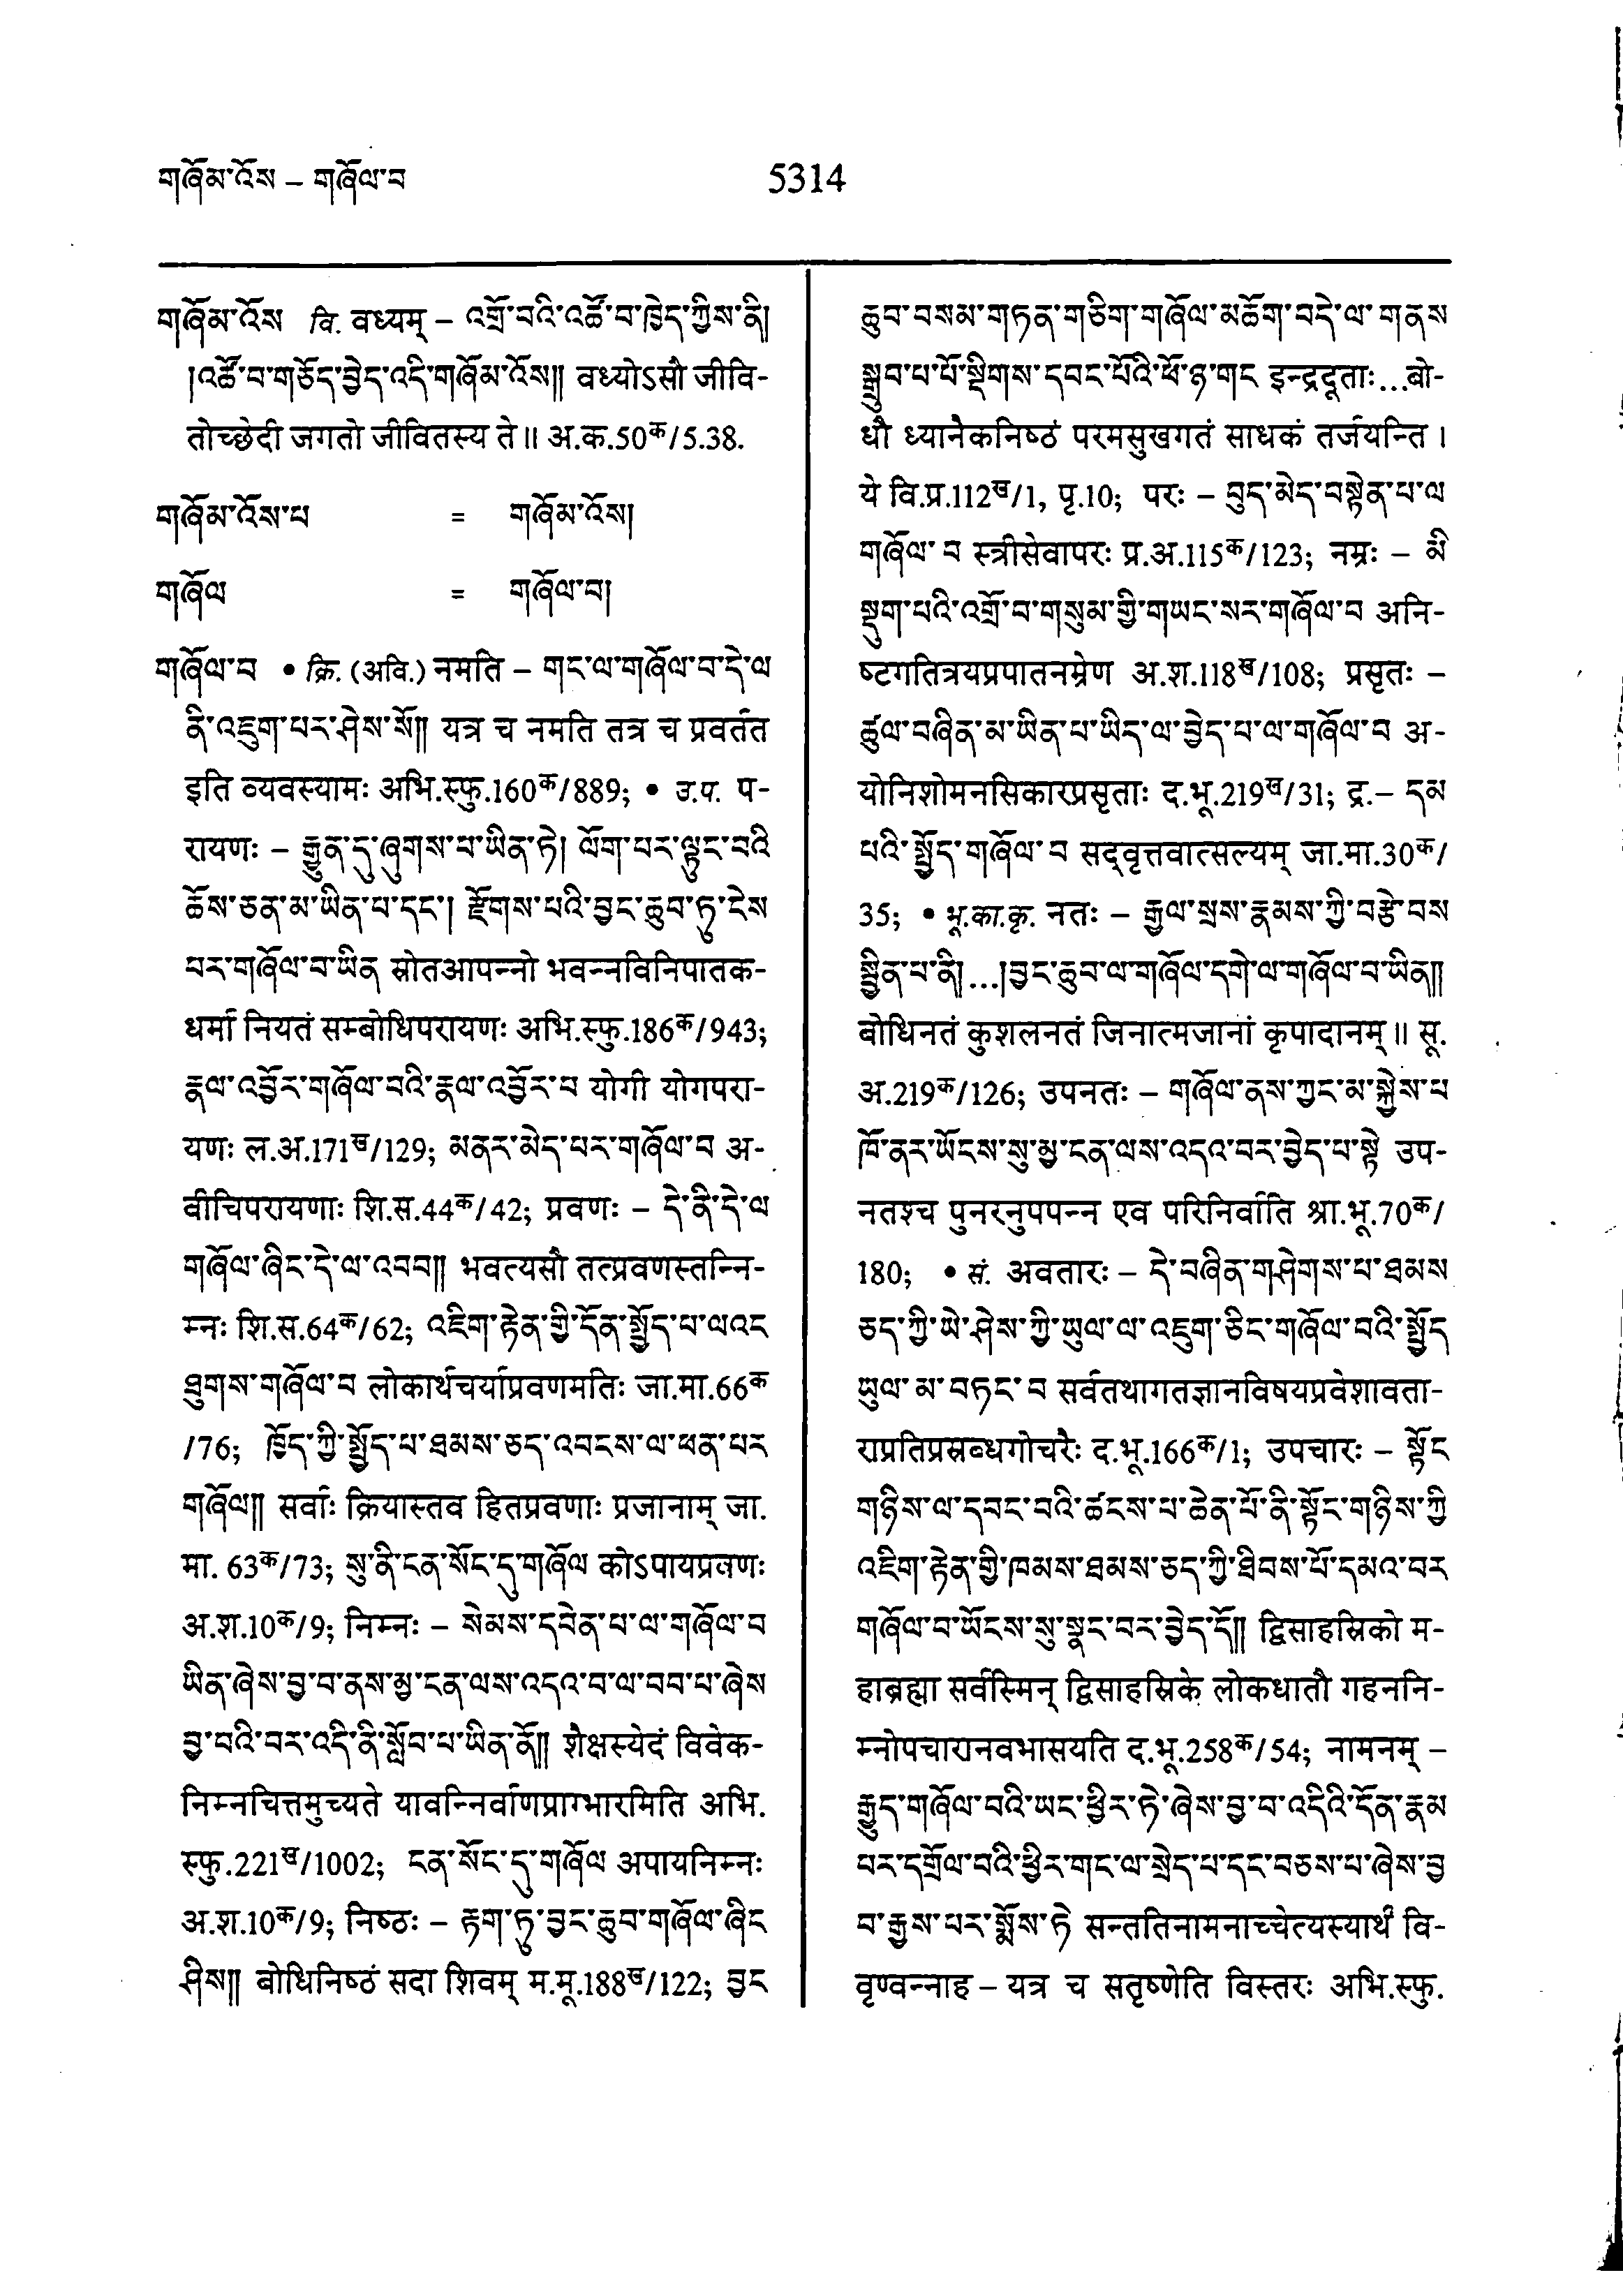 གཞོམ་འོས – གཞོལ་བ
5314
གཞོམ་འོས वि. वध्यम् – འགྲོ་བའི་འཚོ་བ་ཁྱེད་ཀྱིས་ནི།
།འཚོ་བ་གཅོད་བྱེད་འདི་གཞོམ་འོས།། वध्योऽसौ जीवि-
तोच्छेदी जगतो जीवितस्य ते॥ अ.क.50क/5.38.
གཞོམ་འོས་པ = གཞོམ་འོས།
གཞོལ = གཞོལ་བ།
གཞོལ་བ • क्रि. (अवि.) नमति – གང་ལ་གཞོལ་བ་དེ་ལ
ནི་འཇུག་པར་ཤེས་སོ།། यत्र च नमति तत्र च प्रवर्तत
इति व्यवस्यामः अभि.स्फु.160क/889; • उ.प. प-
रायणः – རྒྱུན་དུ་ཞུགས་པ་ཡིན་ཏེ། ལོག་པར་ལྟུང་བའི
ཆོས་ཅན་མ་ཡིན་པ་དང་། རྫོགས་པའི་བྱང་ཆུབ་ཏུ་ངེས
པར་གཞོལ་བ་ཡིན स्रोतआपन्नो भवन्नविनिपातक-
धर्मा नियतं सम्बोधिपरायणः अभि.स्फु.186क/943;
རྣལ་འབྱོར་གཞོལ་བའི་རྣལ་འབྱོར་བ योगी योगपरा-
यणः ल.अ.171ख/129; མནར་མེད་པར་གཞོལ་བ अ-
वीचिपरायणाः शि.स.44क/42; प्रवणः – དེ་ནི་དེ་ལ
གཞོལ་ཞིང་དེ་ལ་འབབ།། भवत्यसौ तत्प्रवणस्तन्नि-
म्नः शि.स.64क/62; འཇིག་རྟེན་གྱི་དོན་སྤྱོད་པ་ལའང
ཐུགས་གཞོལ་བ लोकार्थचर्याप्रवणमतिः जा.मा.66क
/76; ཁྱོད་ཀྱི་སྤྱོད་པ་ཐམས་ཅད་འབངས་ལ་ཕན་པར
གཞོལ།། सर्वाः क्रियास्तव हितप्रवणाः प्रजानाम् जा.
मा. 63क/73; སུ་ནི་ངན་སོང་དུ་གཞོལ कोऽपायप्रवणः
अ.श.10क/9; निम्नः – སེམས་དབེན་པ་ལ་གཞོལ་བ
ཡིན་ཞེས་བྱ་བ་ནས་མྱ་ངན་ལས་འདའ་བ་ལ་བབ་པ་ཞེས
བྱ་བའི་བར་འདི་ནི་སློབ་པ་ཡིན་ནོ།། शैक्षस्येदं विवेक-
निम्नचित्तमुच्यते यावन्निर्वाणप्राग्भारमिति अभि.
स्फु.221ख/1002; ངན་སོང་དུ་གཞོལ अपायनिम्नः
अ.श.10क/9; निष्ठः – རྟག་ཏུ་བྱང་ཆུབ་གཞོལ་ཞིང
ཤིས།། बोधिनिष्ठं सदा शिवम् म.मू.188ख/122; བྱང
ཆུབ་བསམ་གཏན་གཅིག་གཞོལ་མཆོག་བདེ་ལ་ གནས
སྒྲུབ་པ་པོ་སྡིགས་དབང་པོའི་ཕོ་ཉ་གང इन्द्रदूताः...बो-
धौ ध्यानैकनिष्ठं परमसुखगतं साधकं तर्जयन्ति ।
ये वि.प्र.112ख/1, पृ.10; परः – བུད་མེད་བསྟེན་པ་ལ
གཞོལ་ བ स्त्रीसेवापरः प्र.अ.115क/123; नम्रः – མི
སྡུག་པའི་འགྲོ་བ་གསུམ་གྱི་གཡང་སར་གཞོལ་བ अनि-
ष्टगतित्रयप्रपातनम्रेण अ.श.118ख/108; प्रसृतः –
ཚུལ་བཞིན་མ་ཡིན་པ་ཡིད་ལ་བྱེད་པ་ལ་གཞོལ་བ अ-
योनिशोमनसिकारप्रसृताः द.भू.219ख/31; द्र.– དམ
པའི་སྤྱོད་གཞོལ་བ सद्वृत्तवात्सल्यम् जा.मा.30क/
35; • भू.का.कृ. नतः – རྒྱལ་སྲས་རྣམས་ཀྱི་བརྩེ་བས
སྦྱིན་པ་ནི།...།བྱང་ཆུབ་ལ་གཞོལ་དགེ་ལ་གཞོལ་བ་ཡིན།།
बोधिनतं कुशलनतं जिनात्मजानां कृपादानम्॥ सू.
अ.219क/126; उपनतः – གཞོལ་ནས་ཀྱང་མ་སྐྱེས་པ
ཁོ་ནར་ཡོངས་སུ་མྱ་ངན་ལས་འདའ་བར་བྱེད་པ་སྟེ उप-
नतश्च पुनरनुपपन्न एव परिनिर्वाति श्रा.भू.70क/
180; • सं. अवतारः – དེ་བཞིན་གཤེགས་པ་ཐམས
ཅད་ཀྱི་ཡེ་ཤེས་ཀྱི་ཡུལ་ལ་འཇུག་ཅིང་གཞོལ་བའི་སྤྱོད
ཡུལ་མ་བཏང་བ सर्वतथागतज्ञानविषयप्रवेशावता-
राप्रतिप्रस्रब्धगोचरैः द.भू.166क/1; उपचारः – སྟོང
གཉིས་ལ་དབང་བའི་ཚངས་པ་ཆེན་པོ་ནི་སྟོང་གཉིས་ཀྱི
འཇིག་རྟེན་གྱི་ཁམས་ཐམས་ཅད་ཀྱི་ཐིབས་པོ་དམའ་བར
གཞོལ་བ་ཡོངས་སུ་སྣང་བར་བྱེད་དོ།། द्विसाहस्रिको म-
हाब्रह्मा सर्वस्मिन् द्विसाहस्रिके लोकधातौ गहननि-
म्नोपचारानवभासयति द.भू.258क/54; नामनम् –
རྒྱུད་གཞོལ་བའི་ཡང་ཕྱིར་ཏེ་ཞེས་བྱ་བ་འདིའི་དོན་རྣམ
པར་དགྲོལ་བའི་ཕྱིར་གང་ལ་སྲེད་པ་དང་བཅས་པ་ཞེས་བྱ
བ་རྒྱས་པར་སྨོས་ཏེ सन्ततिनामनाच्चेत्यस्यार्थं वि-
वृण्वन्नाह – यत्र च सतृष्णेति विस्तरः अभि.स्फु.